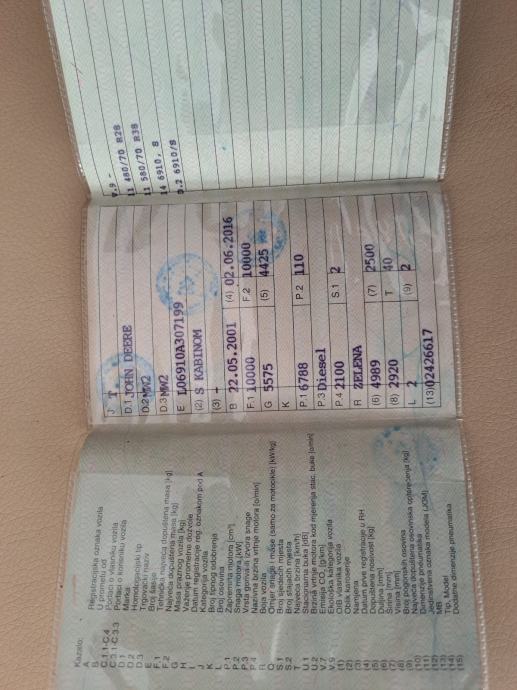 V.9 -
11 480/70 R28
11 580/70 R38
14 6910, S
D.2 6910/S
J T
D.1 JOHN DEERE
D.2 MW2
D.3 MW2
E L06910A307199
(2) S KABINOM
(3) -
B 22.05.2001 (4) 02.06.2016
F.1 10000 F.2 10000
G 5575 (5) 4425
K
P.1 6788 P.2 110
P.3 Diesel
P.4 2100 S.1 2
R ZELENA
(6) 4989 (7) 2500
(8) 2920 T 40
L 2 (9) 2
(13) 02426617
Kazalo:
A Registracijska oznaka vozila
B U prometu od
C.1.1-C.4 Podaci o vlasniku vozila
C.3.1-C.3.3 Podaci o korisniku vozila
D.1 Marka
D.2 Homologacijski tip
D.3 Trgovački naziv
E Broj šasije
F.1 Tehnička najveća dopuštena masa [kg]
F.2 Najveća dopuštena masa [kg]
G Masa praznog vozila [kg]
H Važenje prometne dozvole
I Datum registracije reg. oznakom pod A
J Kategorija vozila
K Broj tipnog odobrenja
L Broj osovina
P.1 Zapremina motora [cm³]
P.2 Snaga motora [kW]
P.3 Vrsta goriva ili izvora snage
P.4 Nazivna brzina vrtnje motora [o/min]
R Boja vozila
Q Omjer snage i mase (samo za motocikle) [kW/kg]
S.1 Broj sjedećih mjesta
S.2 Broj stajaćih mjesta
T Najveća brzina [km/h]
U.1 Stacionarna buka [dB]
U.2 Brzina vrtnje motora kod mjerenja stac. buke [o/min]
V.7 Emisija CO₂ [g/km]
V.9 Ekološka kategorija vozila
(1) OIB vlasnika vozila
(2) Oblik karoserije
(3) Namjena
(4) Datum prve registracije u RH
(5) Dopuštena nosivost [kg]
(6) Dužina [mm]
(7) Širina [mm]
(8) Visina [mm]
(9) Broj pogonskih osovina
(10) Najveća dopuštena osovinska opterećenja [kg]
(11) Dimenzije pneumatika
(12) Jedinstvena oznaka modela (JOM)
(13) MB
(14) Tip, Model
(15) Dodatne dimenzije pneumatika